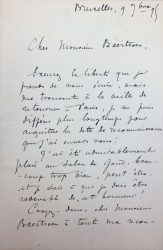 Bruxelles, 9 9bre 95
Cher Monsieur Baertsoen,
Excusez la liberté que je
prends de vous écrire, mais
me trouvant à la veille de
retourner à Paris, je ne puis
différer plus longtemps pour
acquitter la dette de reconnaissance
que j'ai envers vous.
J'ai été admirablement
placé au Salon de Gand, beau-
coup trop bien, peut-être,
et je sais que je dois être
redevable de cet honneur.
Croyez donc, cher Monsieur
Baertsoen à toute ma recon-